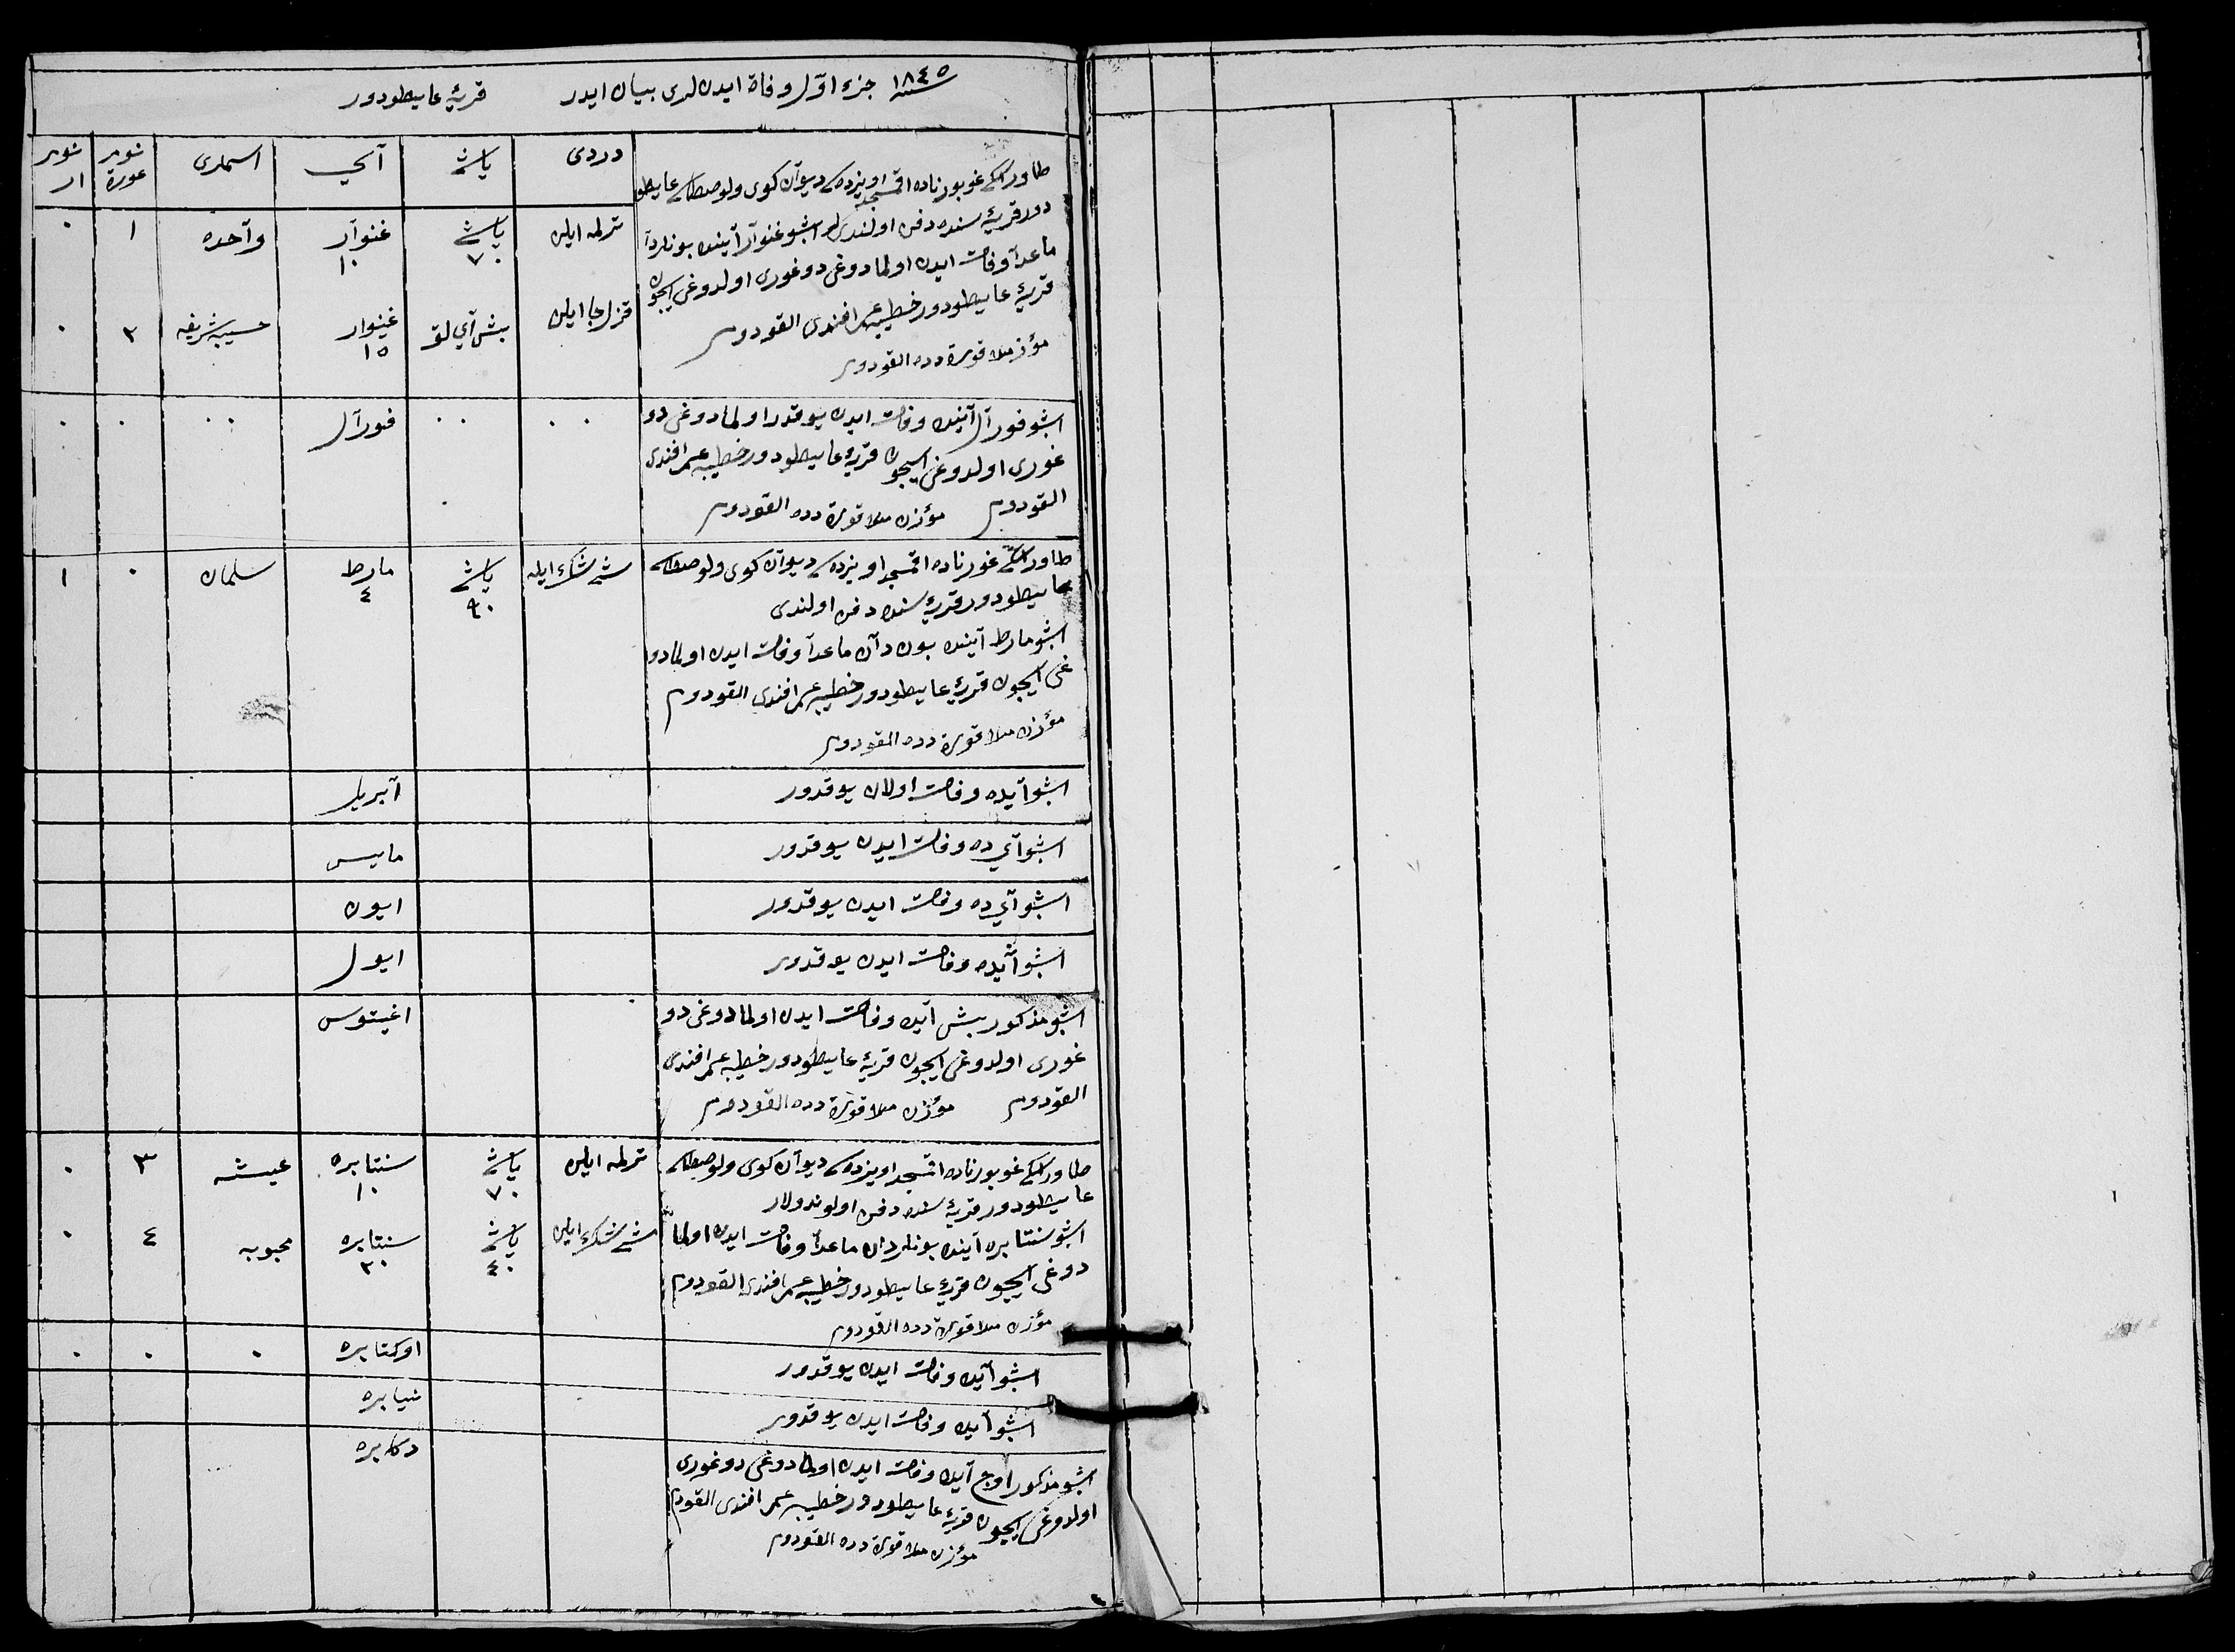 سنه ١٨٤٥ جزء اوّل وفاة ايدن لرى بيان ايدر قريهٔ عايطودور
دردى ياشے آي اسملرى نومر عورة نومر ار
طاوريكے غوبورناده اقمسجد اويزده ديوآن كوى ولوصطے عايطو
دور قريهٔ سنده دفن اولندى لر اشبو غنوآر آينده بونلردآ
ماعدآ وفات ايدن اولمادوغى دوغورى اولدوغى ايچون
قريهٔ عايطودور خطيبى عمر افندى القودوم
مؤزن ملا قورة دده القودوم
ترله ايلن ياشے ٧٠ غنوآر ١٠ وآحده ١ ٠
قزلجا ايلن بش آي لق غنوار ١٥ حسيبه شريفه ٢ ٠
اشبو فورآل آينده وفات ايدن يوقدر اولمادوغى دو
غورى اولدوغى ايچون قريهٔ عايطودور خطيبى عمر افندى
القودوم مؤزن ملا قورة دده القودوم
٠٠ ٠٠ فورآل ٠٠ ٠ ٠
طاوريكے غوبرناده اقمسجد اويزده ديوآن كوى ولوصطے
عايطودور قريهٔ سنده دفن اولندى
اشبو مارط آينده بون دآن ماعدآ وفات ايدن اولمادو
غى ايچون قريهٔ عايطودور خطيبى عمر افندى القودوم
مؤزن ملا قورة دده القودوم
ياشے ٩٠ مارط ٤ سلمان ٠ ١
اشبو آيده وفات اولان يوقدور آبريل
اشبو آي ده وفات ايدن يوقدور مايس
اشبو آي ده وفات ايدن يوقدور ايون
اشبو آيده وفات ايدن يوقدور ايول
اشبو مذكور بش آيده وفات ايدن اولمادوغى دو
غورى اولدوغى ايچون قريهٔ عايطودور خطيبى عمر افندى
القودوم مؤزن ملا قورة دده القودوم
اغستوس
طاوريكے غوبورناده اقمسجد اويزده ديوآن كوى ولوصطے
عايطودور قريهٔ سنده دفن اولوندولار
اشبو سنتابره آينده بونلردان ماعدآ وفات ايدن اولما
دوغى ايچون قريهٔ عايطودور خطيبى عمر افندى القودوم
مؤزن ملا قورة دده القودوم
ترله ايلن ياشے ٧٠ سنتابره ١٠ عيشه ٣ ٠
ياشے ٤٠ سنتابره ٢٠ محبوبه ٤ ٠
اشبو آيده وفات ايدن يوقدور اوكتابره ٠ ٠ ٠
اشبو آيده وفات ايدن يوقدور نيابره
اشبو مذكور اوچ آيده وفات ايدن اولمادوغى دوغورى
اولدوغى ايچون قريهٔ عايطودور خطيبى عمر افندى القودوم
مؤزن ملا قورة دده القودوم
دكابره